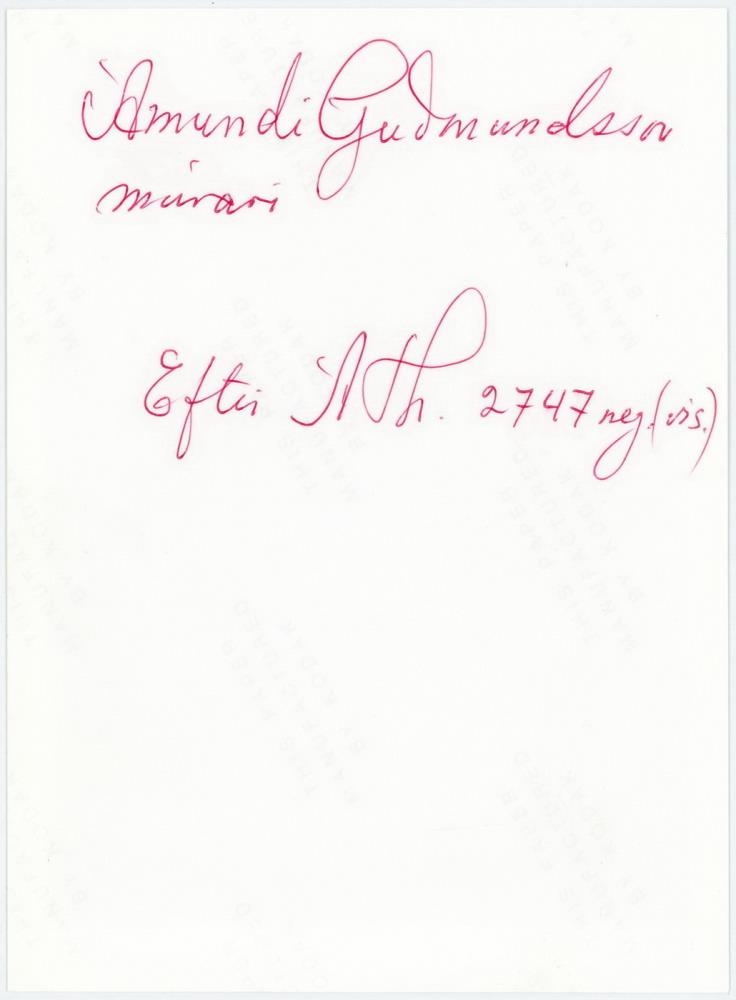 Ámundi Guðmundsson
múrari
Eftir ÁTh. 2747 neg. (vis.)
THIS PAPER
MANUFACTURED
BY KODAK